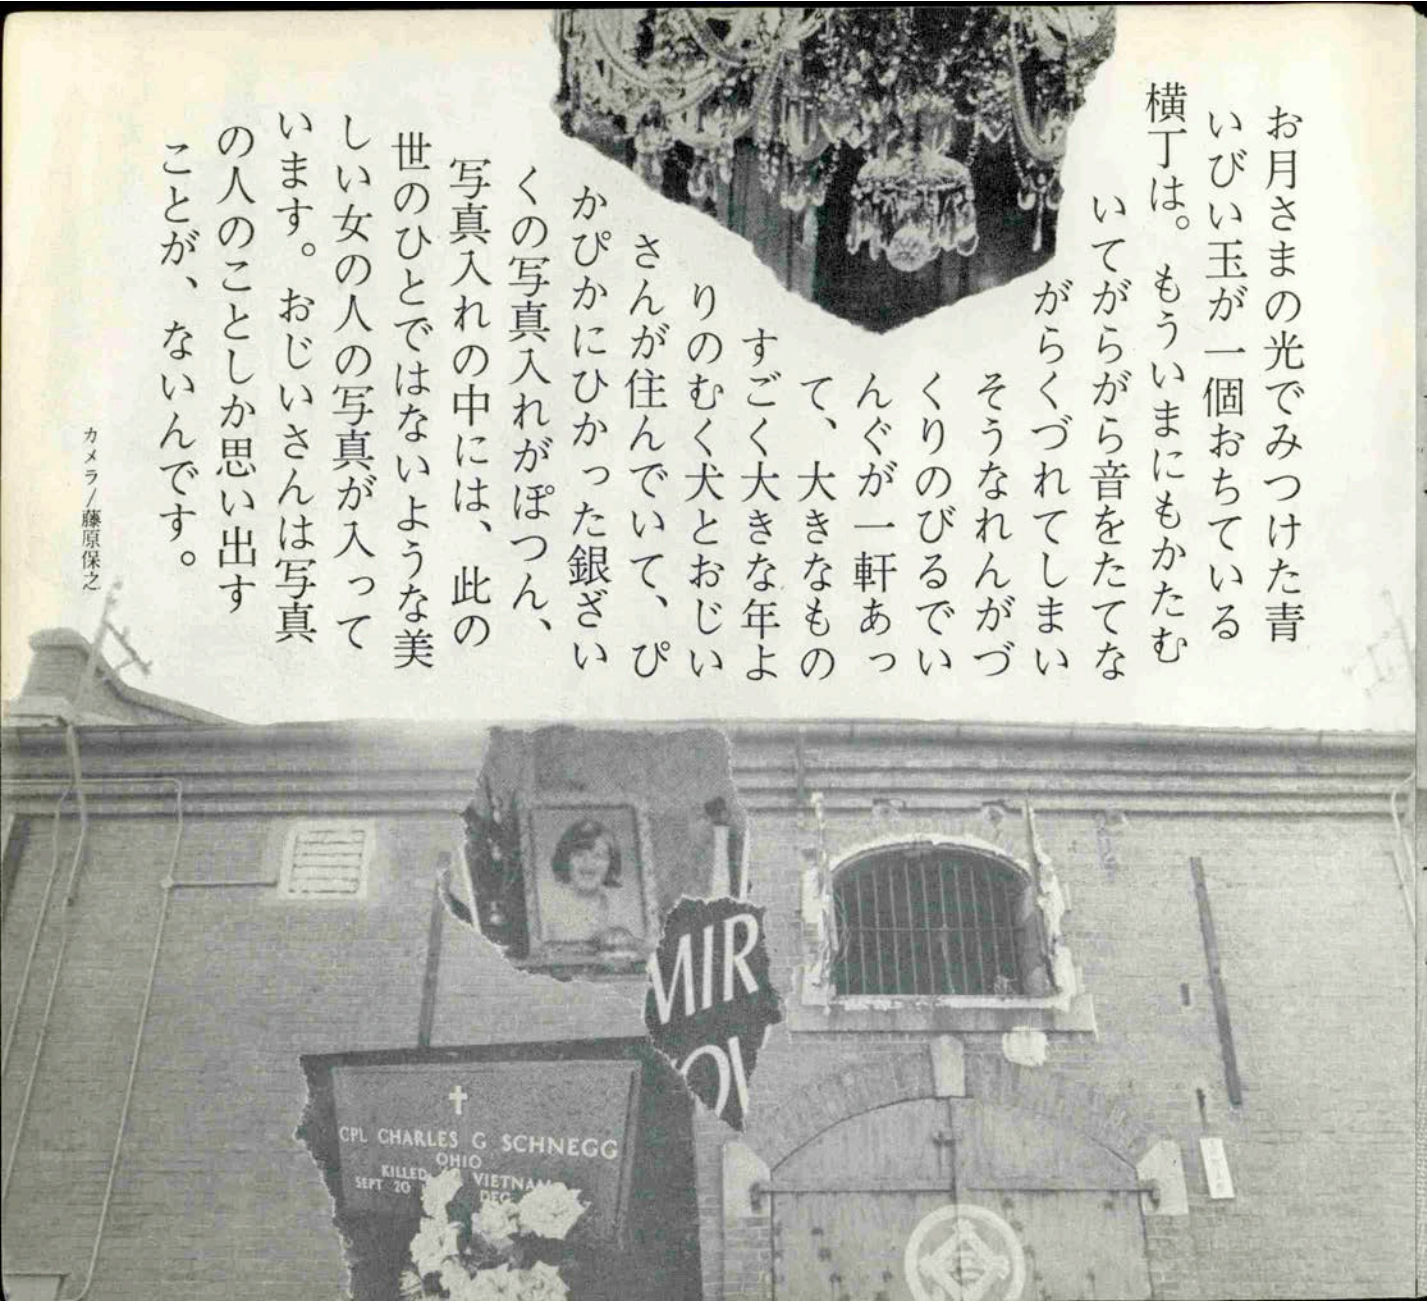 お月さまの光でみつけた青
いびい玉が一個おちている
横丁は。もういまにもかたむ
いてがらがら音をたてな
がらくづれてしまい
そうなれんがづ
くりのびるでい
んぐが一軒あっ
て、大きなもの
すごく大きな年よ
りのむく犬とおじい
さんが住んでいて、ぴ
かぴかにひかった銀ざい
くの写真入れがぽつん、
写真入れの中には、此の
世のひとではないような美
しい女の人の写真が入って
います。おじいさんは写真
の人のことしか思い出す
ことが、ないんです。
カメラ/藤原保之
MIR
CPL CHARLES G SCHNEGG
OHIO
KILLED VIETNAM
SEPT 20 DEC